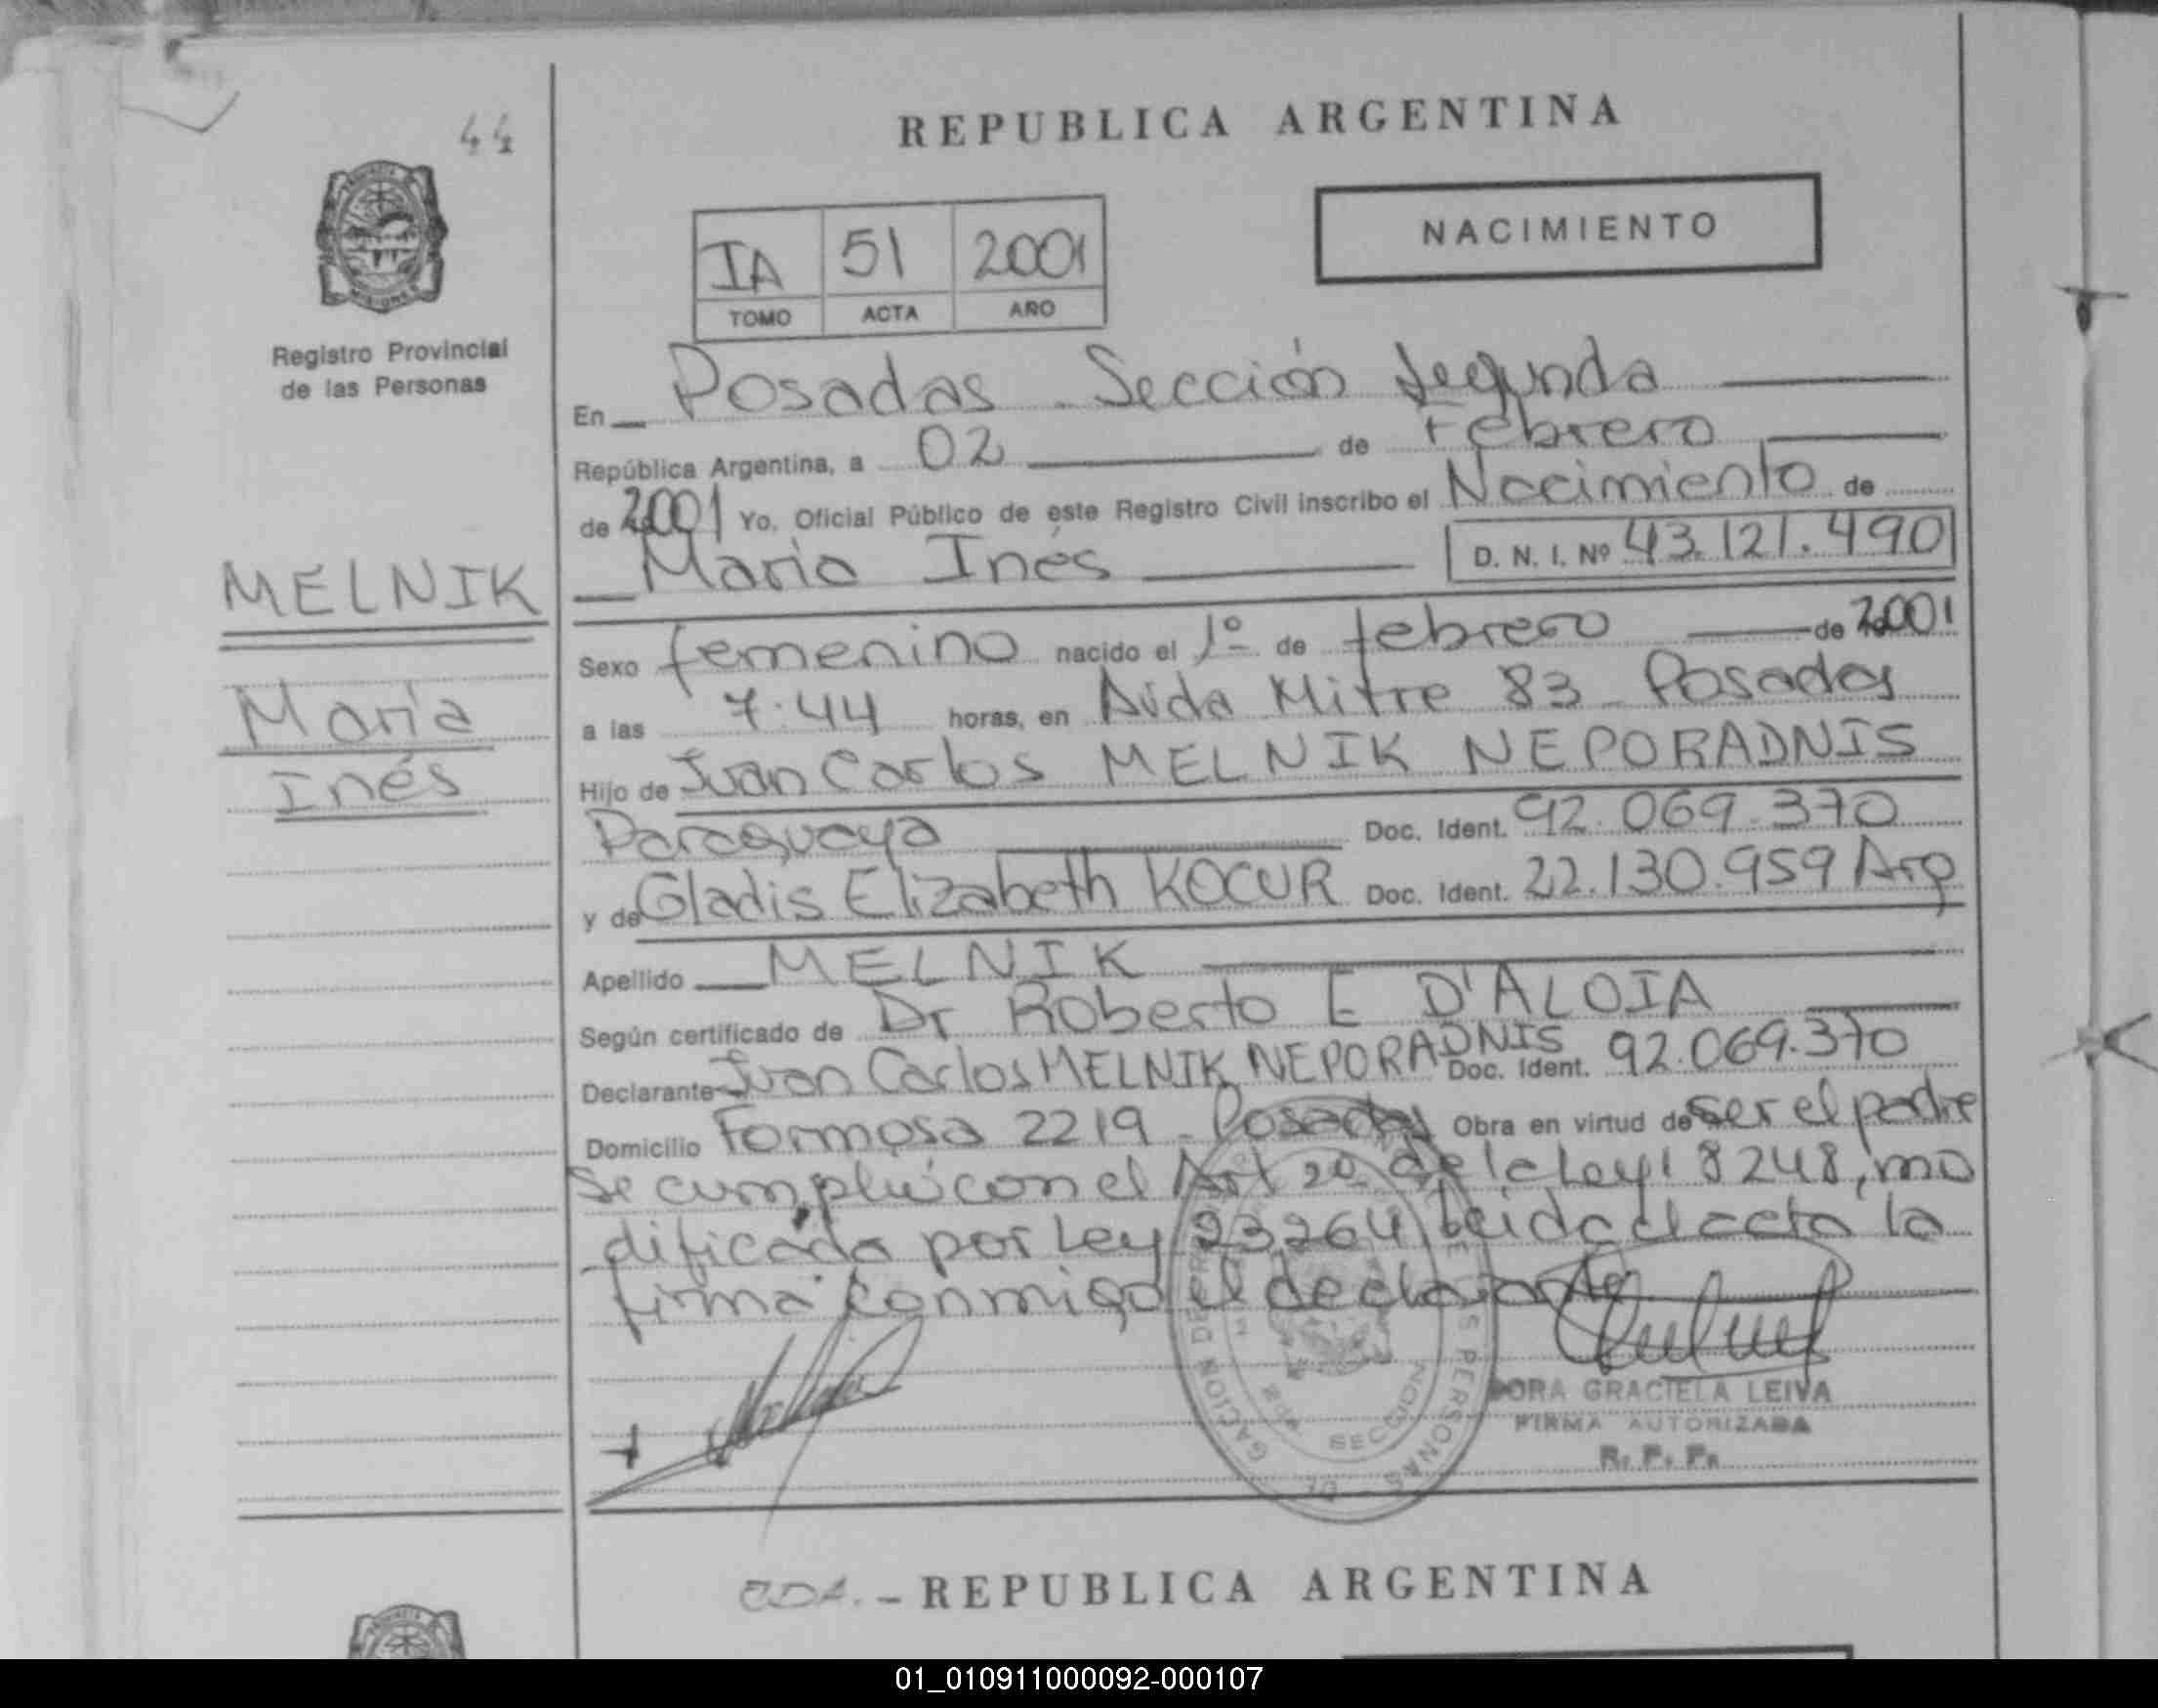 44
REPUBLICA ARGENTINA
NACIMIENTO
IA 51 2001
TOMO ACTA AÑO
Registro Provincial
de las Personas
En Posadas Sección Segunda
República Argentina, a 02 de Febrero
de 2001 Yo, Oficial Público de este Registro Civil inscribo el Nacimiento de
María Inés D. N. I. Nº 43.121.490
MELNIK
María
Inés
Sexo femenino nacido el 1º de febrero de 2001
a las 7:44 horas, en Avda Mitre 83 Posadas
Hijo de Juan Carlos MELNIK NEPORADNIS
Paraguaya Doc. Ident. 92.069.370
y de Gladis Elizabeth KOCUR Doc. Ident. 22.130.959 Arg
Apellido MELNIK
Según certificado de Dr Roberto E D'ALOIA
Declarante Juan Carlos MELNIK NEPORADNIS Doc. Ident. 92.069.370
Domicilio Formosa 2219 - Posadas Obra en virtud de ser el padre
Se cumplió con el Art 20 de la Ley 18248, mo
dificada por Ley 23264 leida el acta la
firma conmigo el declarante
DORA GRACIELA LEIVA
FIRMA AUTORIZADA
R. P. P.
SECCION
REPUBLICA ARGENTINA
01_010911000092-000107